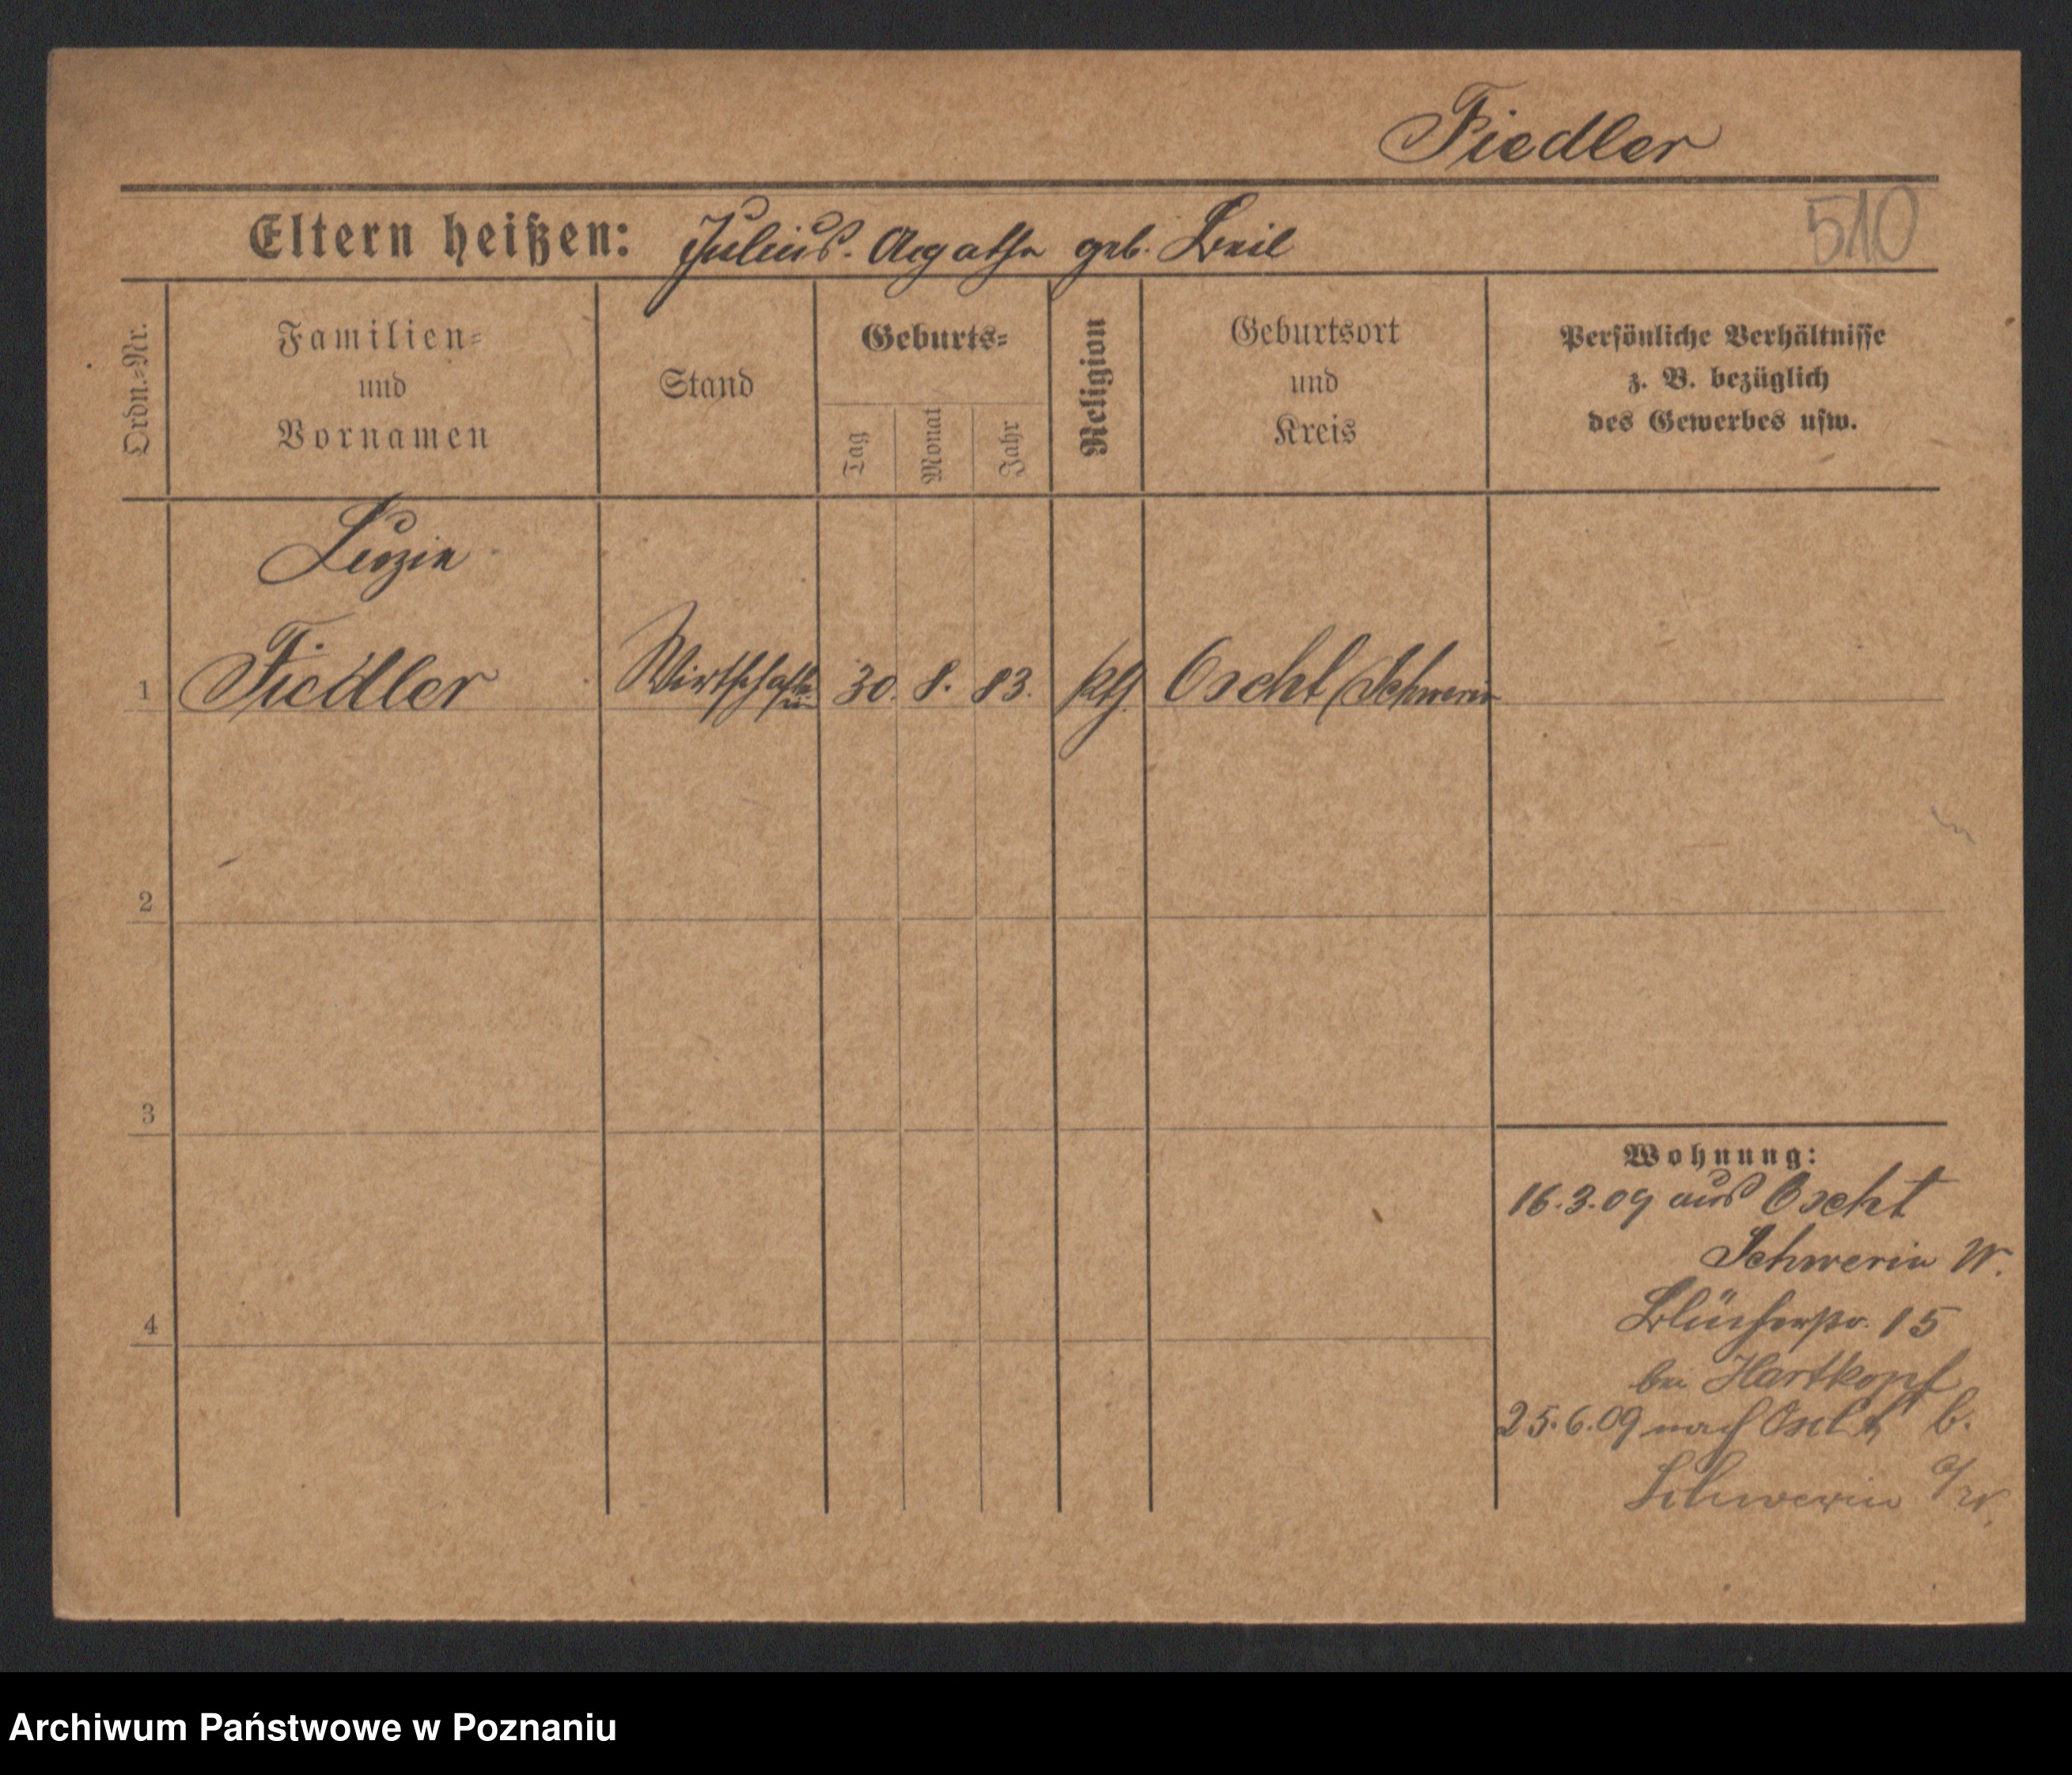 Fiedler
510
Eltern heißen: Julius. Agathe geb. Beil
Ordn.-Nr.
Familien-
und
Vornamen
Stand
Geburts-
Tag
Monat
Jahr
Religion
Geburtsort
und
Kreis
Persönliche Verhältnisse
z. B. bezüglich
des Gewerbes usw.
Luzia
1 Fiedler 30. 8. 83. kth. Oscht/Schwerin
2
3
4
Wohnung:
16.3.09 aus Oscht
Schwerin W.
Blücherstr. 15
bei Hartkopf
25.6.09 nach Oscht b.
Schwerin a/W.
Archiwum Państwowe w Poznaniu